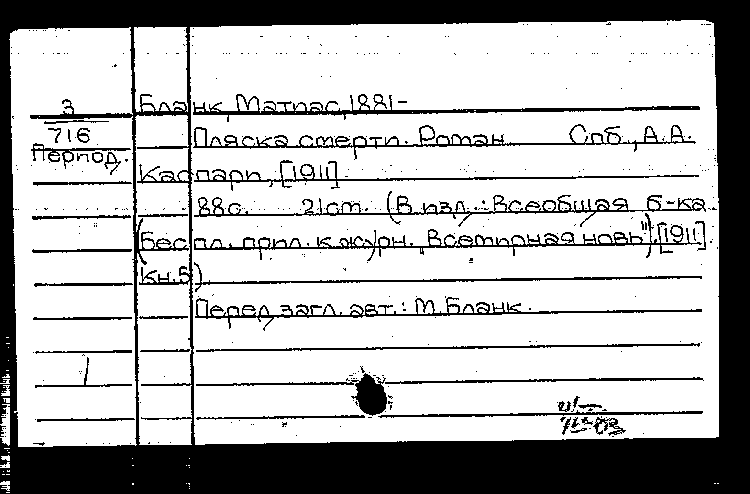 3
716
Период.
Бланк, Матиас, 1881-
Пляска смерти. Роман Спб., А.А.
Каспари, [1911].
88с. 21см. (В изд.: Всеобщая б-ка
(Беспл. прил. к журн. "Всемирная новь"). [1911]
Кн.5)
Перед загл. авт.: М.Бланк.